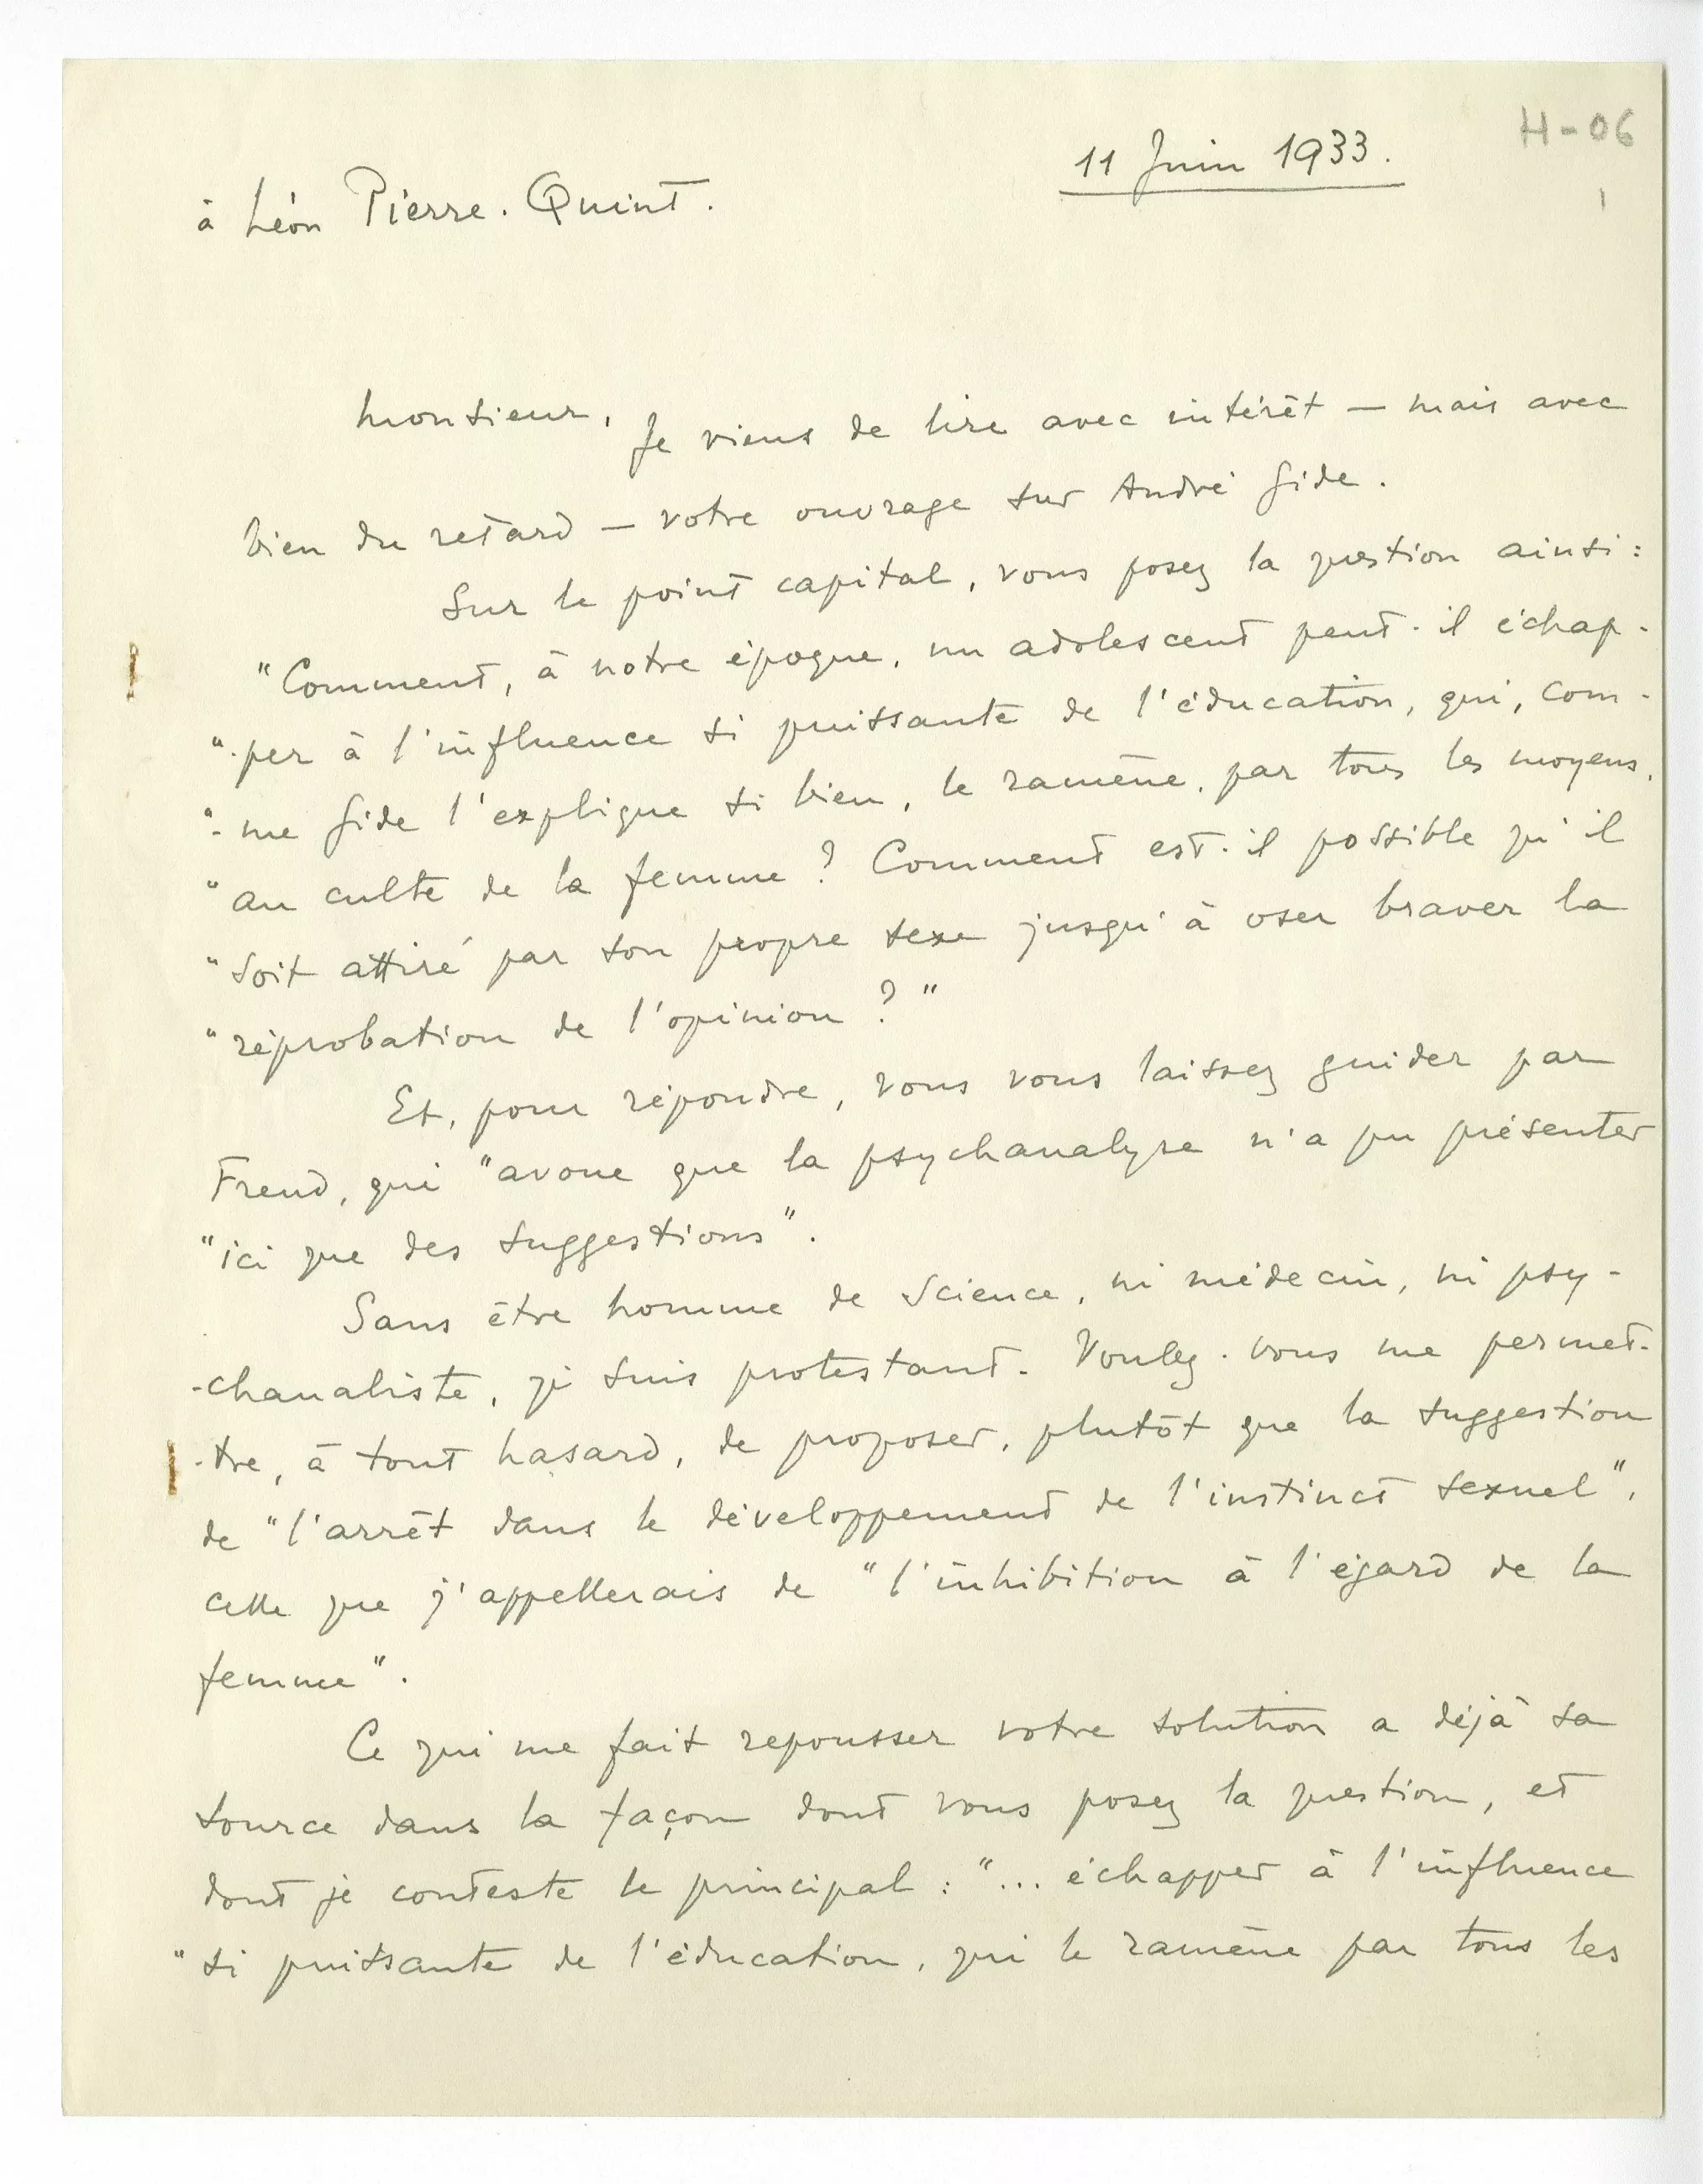 H-06
11 Juin 1933.
1
à Léon Pierre. Quint.
Monsieur,
Je viens de lire avec intérêt — mais avec
bien du retard — votre ouvrage sur André Gide.
Sur le point capital, vous posez la question ainsi :
"Comment, à notre époque, un adolescent peut-il échap-
"-per à l'influence si puissante de l'éducation, qui, com-
"-me Gide l'explique si bien, le ramène, par tous les moyens,
"au culte de la femme ? Comment est-il possible qu'il
"soit attiré par son propre sexe jusqu'à oser braver la
"réprobation de l'opinion ? "
Et, pour répondre, vous vous laissez guider par
Freud, qui "avoue que la psychanalyse n'a pu présenter
"ici que des suggestions".
Sans être homme de Science, ni médecin, ni psy-
-chanaliste, je suis protestant. Voulez-vous me permet-
-tre, à tout hasard, de proposer, plutôt que la suggestion
de "l'arrêt dans le développement de l'instinct sexuel",
celle que j'appellerais de "l'inhibition à l'égard de la
femme".
Ce qui me fait repousser votre solution a déjà sa
source dans la façon dont vous posez la question, et
dont je conteste le principal : "... échapper à l'influence
"si puissante de l'éducation, qui le ramène par tous les